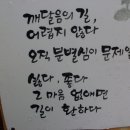 깨달음의 길,
어렵지 않다
오직 분별심이 문제일
싫다, 좋다
그 마음 없애면
길이 환하다